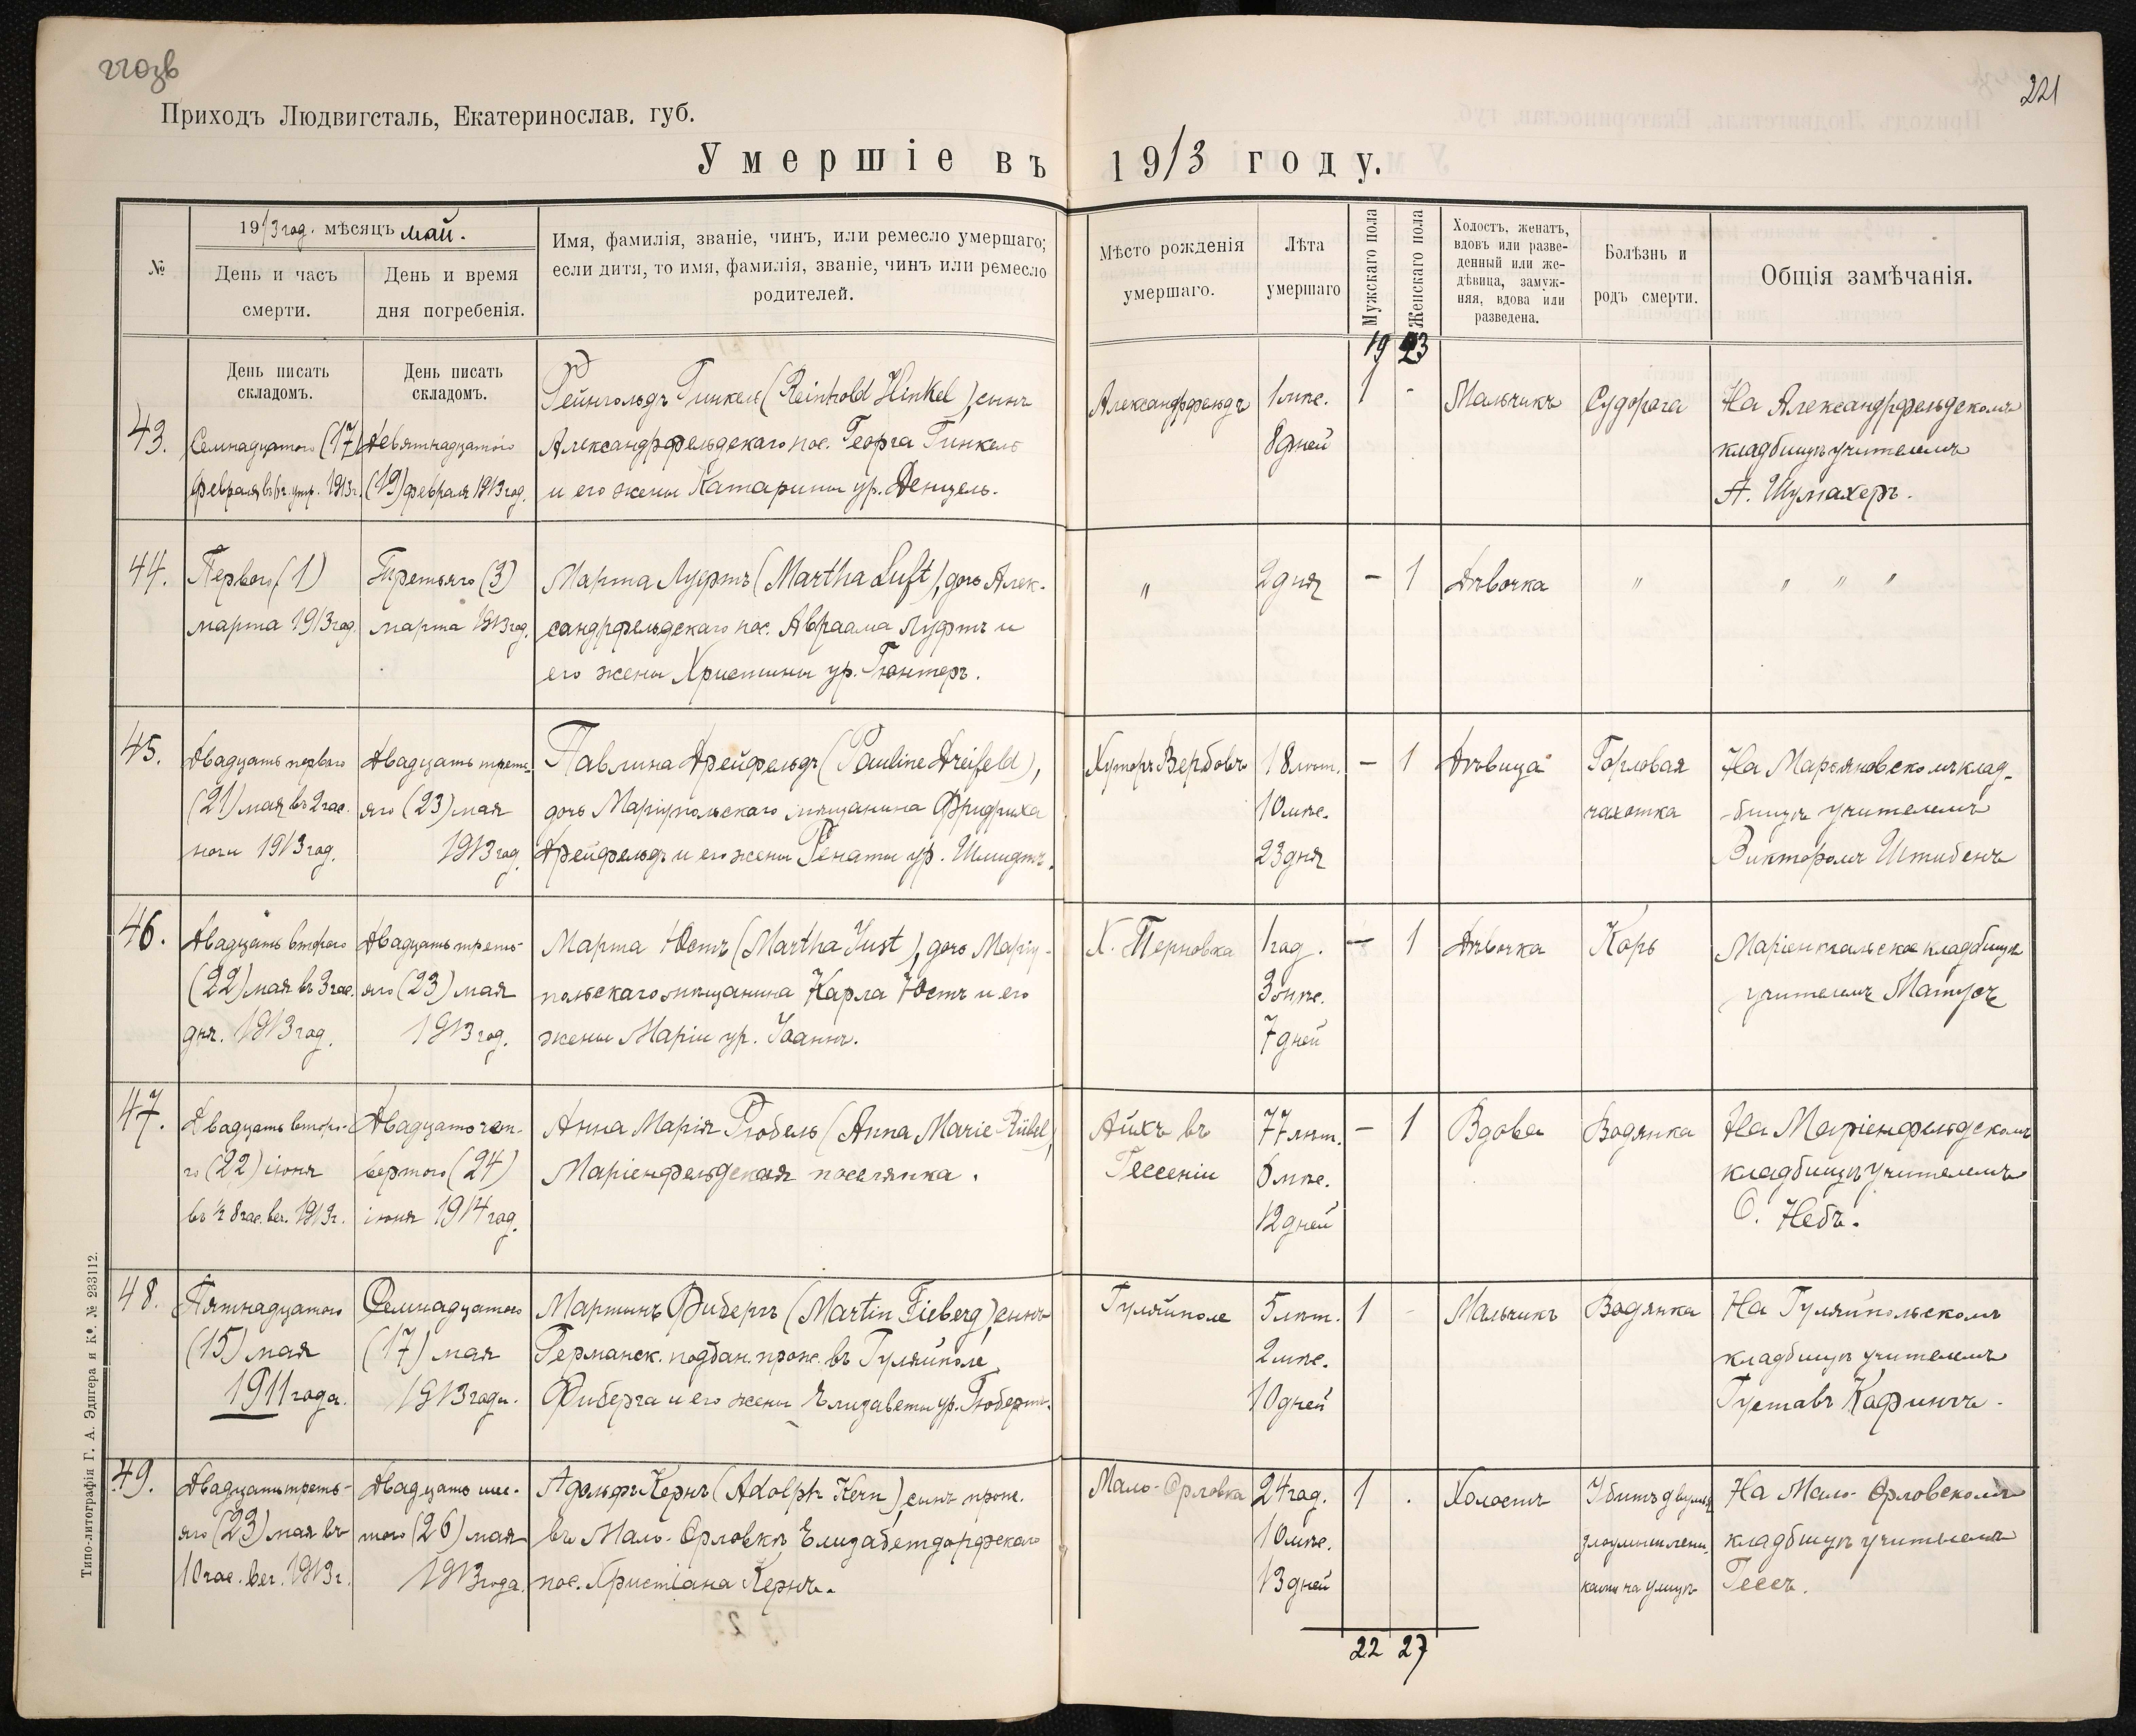 220зв
221
Приходъ Людвигсталь, Екатеринослав. губ.
Умершіе въ 1913 году.
№
1913 год. мѣсяцъ май.
День и часъ
смерти.
День и время
дня погребенія.
Имя, фамилія, званіе, чинъ, или ремесло умершаго;
если дитя, то имя, фамилія, званіе, чинъ или ремесло
родителей.
Мѣсто рожденія
умершаго.
Лѣта
умершаго
Мужскаго пола
Женскаго пола
Холостъ, женатъ,
вдовъ или разве-
денный или же-
дѣвица, замуж-
няя, вдова или
разведена.
Болѣзнь и
родъ смерти.
Общія замѣчанія.
19 23
День писать
складомъ.
День писать
складомъ.
43.
Семнадцатого (17)
февраля въ 6ч. утр. 1913г.
Девятнадцатого
(19) февраля 1913 год.
Рейнгольдъ Гинкель (Reinhold Hinkel), сынъ
Александрфельдскаго пос. Георга Гинкель
и его жены Катарины ур. Денцель.
Александрфельдъ
1 мѣс.
8 дней
1 -
Мальчикъ
Судорога
На Александрфельдскомъ
кладбищѣ учителемъ
А. Шумахеръ.
44.
Перваго (1)
марта 1913 год.
Третьяго (3)
марта 1913 год.
Марта Луфтъ (Martha Luft), дочь Алек-
сандрфельдскаго пос. Авраама Луфтъ и
его жены Христины ур. Гюнтеръ.
"
2 дня
- 1
Дѣвочка
"
" " "
45.
Двадцать перваго
(21) мая въ 2 час.
ночи 1913 год.
Двадцать треть-
яго (23) мая
1913 год.
Павлина Дрейфельдъ (Pauline Dreifeld),
дочь Маріупольскаго мѣщанина Фридриха
Дрейфельдъ и его жены Ренаты ур. Шмидтъ.
Хуторъ Вербовъ
18 лѣт.
10 мѣс.
23 дня
- 1
Дѣвица
Горловая
чахотка
На Марьяновскомъ клад-
бищѣ учителемъ
Викторомъ Штибенъ
46.
Двадцать второго
(22) мая въ 3 час.
дня. 1913 год.
Двадцать треть-
яго (23) мая
1913 год.
Марта Юстъ (Martha Just), дочь Маріу-
польскаго мѣщанина Карла Юстъ и его
жены Маріи ур. Іоаннъ.
Х. Терновка
1 год.
3 мѣс.
7 дней
- 1
Дѣвочка
Корь
кладбищѣ
учителемъ Матусъ
47.
Двадцать второ-
го (22) іюня
въ ½ 8 час. веч. 1913г.
Двадцать чет-
вертого (24)
іюня 1914 год.
Анна Марія Рюбель (Anna Marie Rübel)
Маріенфельдская поселянка.
Айхъ въ
Гессеніи
77 лѣт.
6 мѣс.
12 дней
- 1
Вдова
Водянка
На Маріенфельдскомъ
кладбищѣ учителемъ
О. Небъ.
48.
Пятнадцатого
(15) мая
1911 года.
Семнадцатого
(17) мая
1913 года.
Мартинъ Фибергъ (Martin Fieberg), сынъ
Германск. поддан. прож. въ Гуляйполе
Фиберга и его жены Елизаветы ур. Гюберт.
Гуляйполе
5 лѣт.
2 мѣс.
10 дней
1 -
Мальчикъ
Водянка
На Гуляйпольскомъ
кладбищѣ учителемъ
Густавъ
49.
Двадцать треть-
яго (23) мая въ
10 час. веч. 1913г.
Двадцать шес-
того (26) мая
1913 года.
Адольфъ Кернъ (Adolph Kern), сынъ прож.
въ Мало-Орловкѣ Елизабетдорфскаго
пос. Христіана Кернъ.
Мало-Орловка
24 год.
10 мѣс.
13 дней
1 .
Холостъ
Убитъ двумя
злоумышлен-
на улицѣ
На Мало-Орловскомъ
кладбищѣ учителемъ
Гессъ.
22 27
Типо-литографія Г. А. Эдигера и Ко. № 233112.